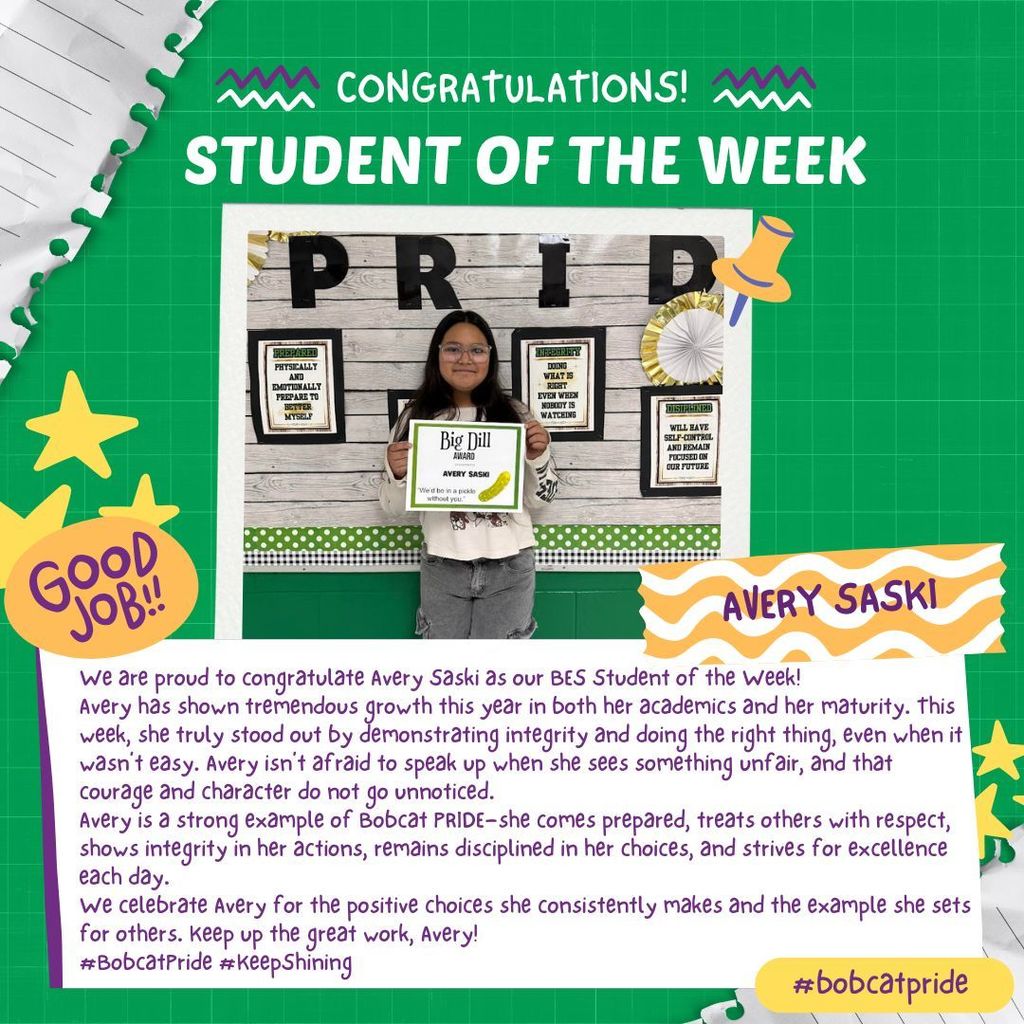 CONGRATULATIONS!
STUDENT OF THE WEEK
PRID
PREPARED
PHYSICALLY
AND
EMOTIONALLY
PREPARE TO
BETTER
MYSELF
INTEGRITY
DOING
WHAT IS
RIGHT
EVEN WHEN
NOBODY IS
WATCHING
DISIPLINED
WILL HAVE
SELF-CONTROL
AND REMAIN
FOCUSED ON
OUR FUTURE
Big Dill
AWARD
AVERY SASKI
"We'd be in a pickle
without you."
GOOD
JOB!!
AVERY SASKI
We are proud to congratulate Avery Saski as our BES Student of the Week!
Avery has shown tremendous growth this year in both her academics and her maturity. This
week, she truly stood out by demonstrating integrity and doing the right thing, even when it
wasn't easy. Avery isn't afraid to speak up when she sees something unfair, and that
courage and character do not go unnoticed.
Avery is a strong example of Bobcat PRIDE—she comes prepared, treats others with respect,
shows integrity in her actions, remains disciplined in her choices, and strives for excellence
each day.
We celebrate Avery for the positive choices she consistently makes and the example she sets
for others. Keep up the great work, Avery!
#BobcatPride #KeepShining
#bobcatpride